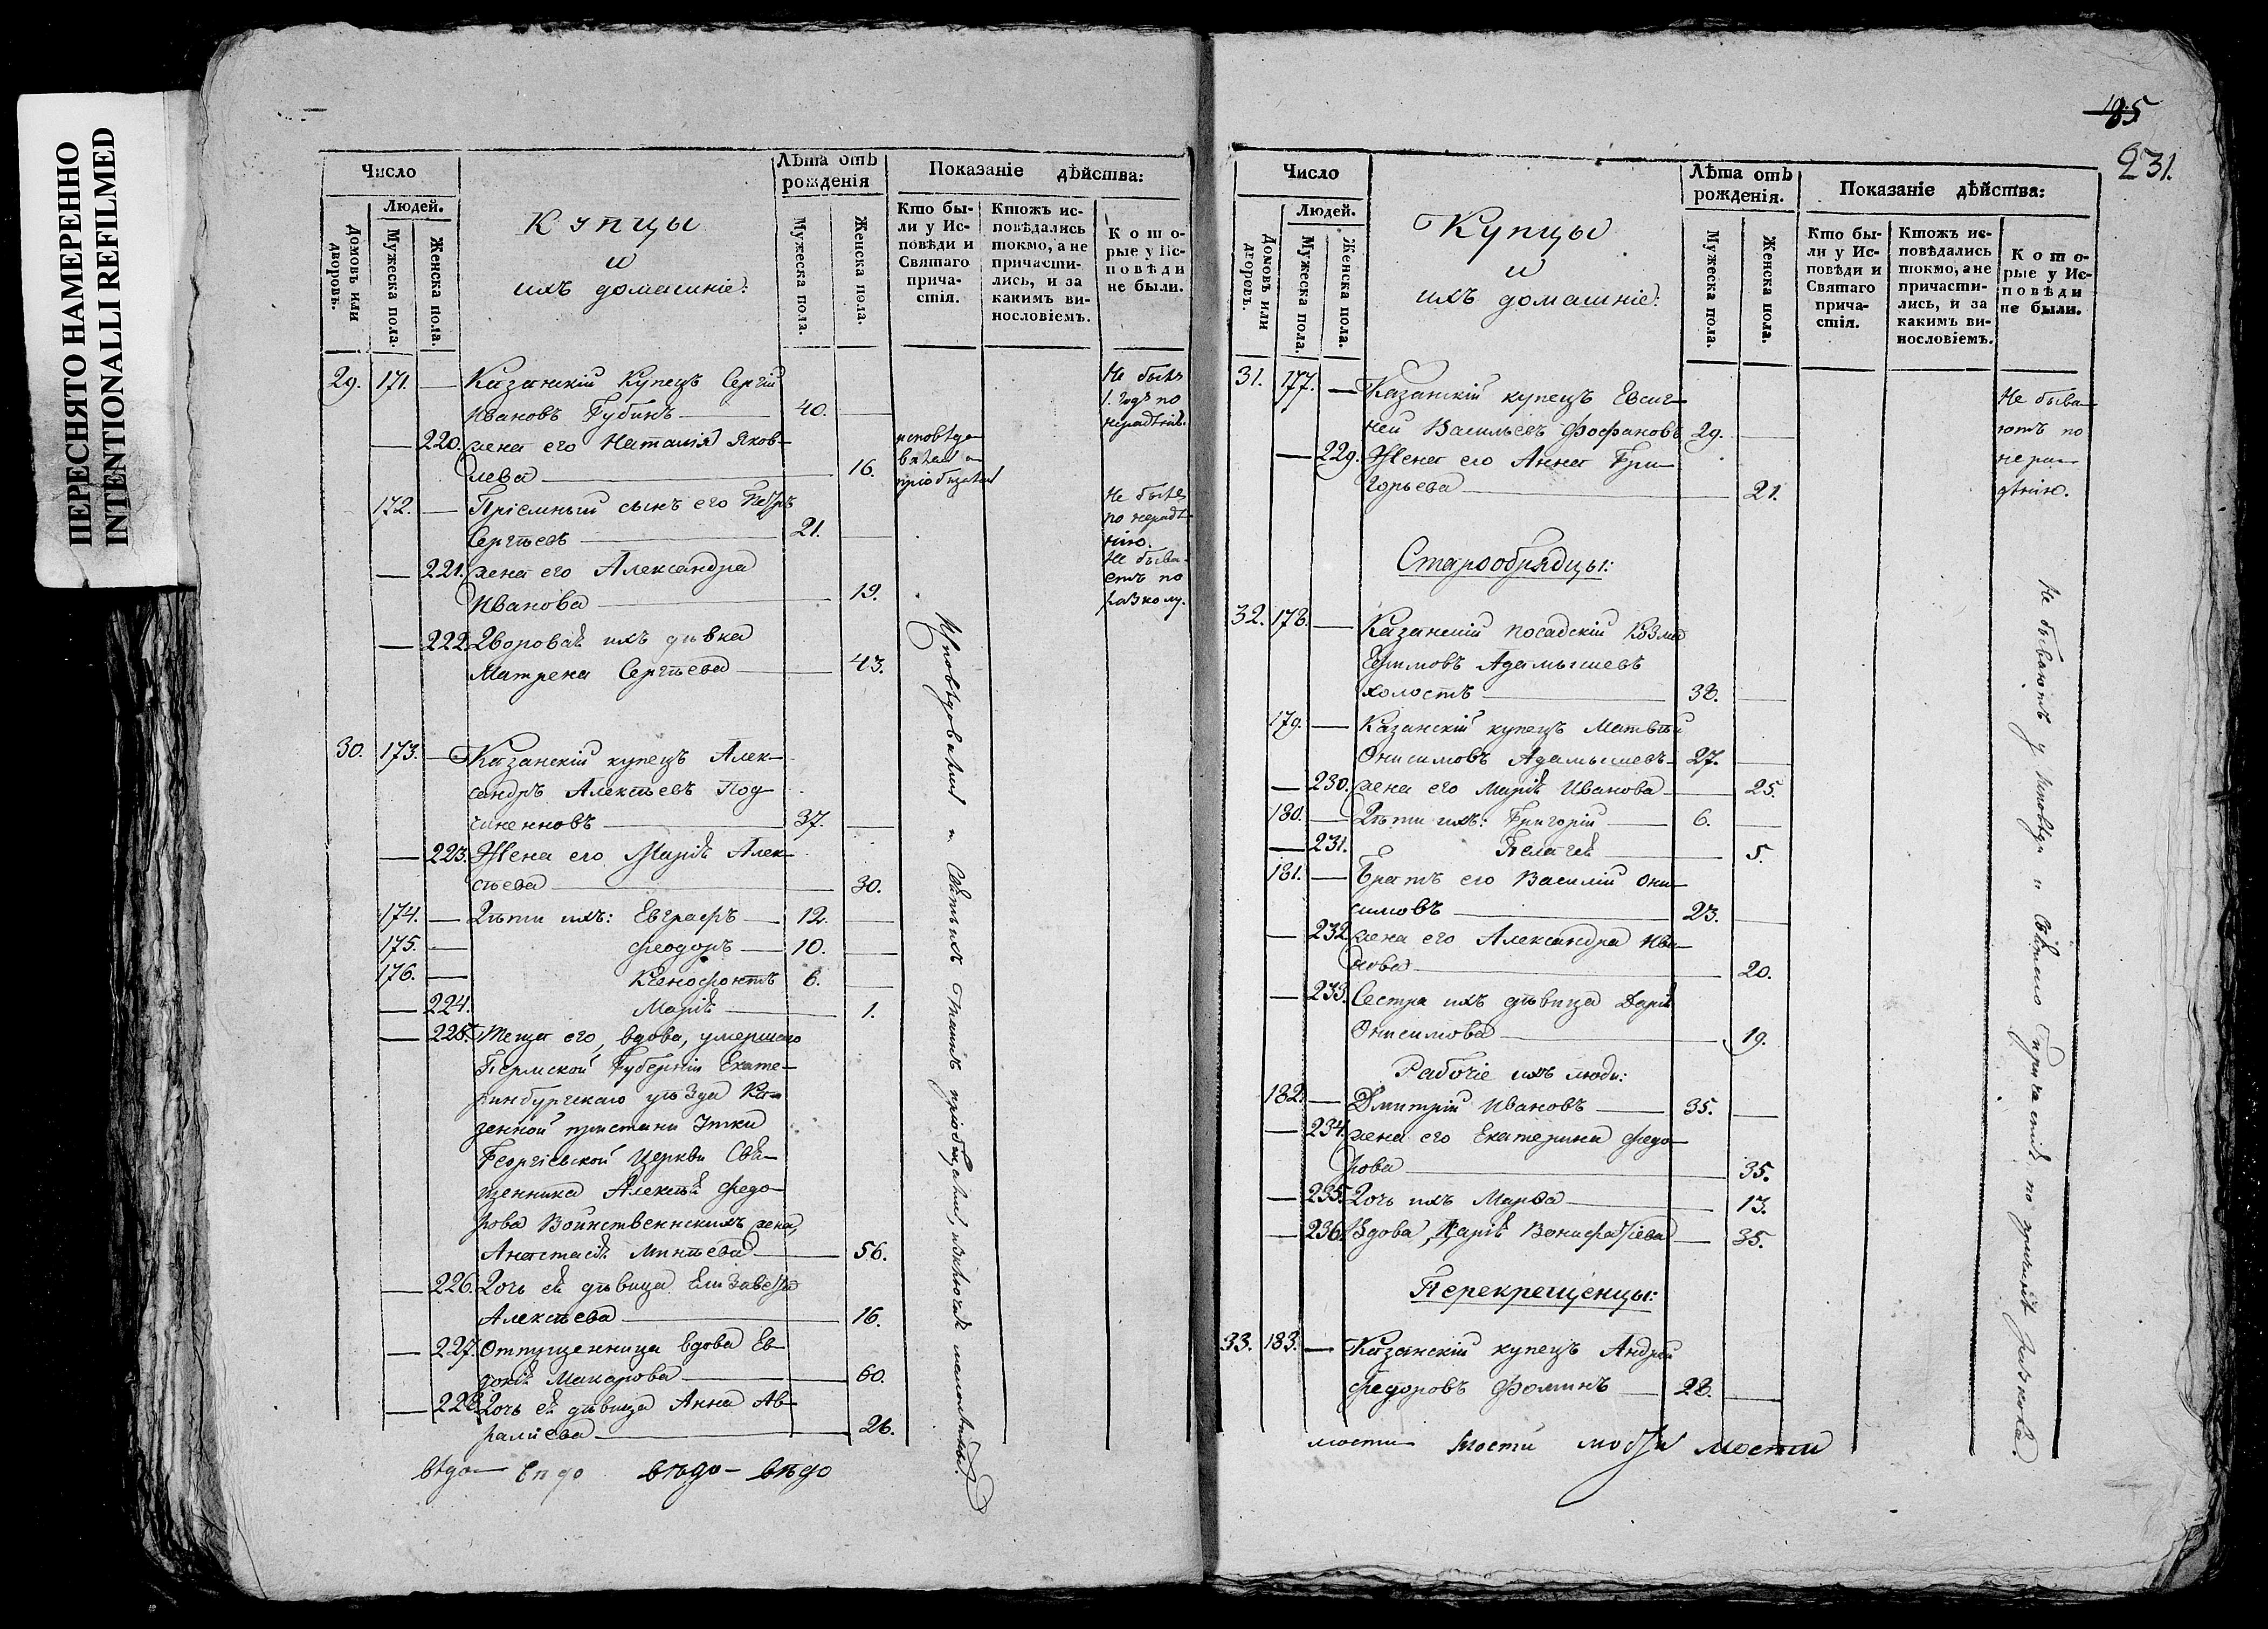 ПЕРЕСНЯТО НАМЕРЕННО
INTENTIONALLI REFILMED
Число
Людей.
Домовъ или дворовъ.
Мужеска пола.
Женска пола.
Купцы
и
ихъ домашніе:
Лѣта отъ рожденія
Мужеска пола.
Женска пола.
Показаніе дѣйства:
Кто бы-
ли у Ис-
повѣди и
Святаго
прича-
стія.
Ктожъ ис-
повѣдались
токмо, а не
причасти-
лись, и за
какимъ ви-
нословіемъ.
Кото-
рые у Ис-
повѣди
не были.
29. 171. — Казанскій Купецъ Сергій
Ивановъ Губинъ — 40. —
Не былъ
1. годъ по
нерадѣнію.
— 220. жена его Наталія Яков-
лева — 16.
исповѣдо-
валась и
пріобщалась
172. — Пріемный сынъ его Петръ
Сергѣевъ — 21.
Не былъ
по нерадѣ-
нію.
— 221. жена его Александра
Иванова — 19.
Не быва-
етъ по
расколу.
— 222. Дворовая ихъ дѣвка
Матрена Сергѣева — 43.
30. 173. — Казанскій купецъ Алек-
сандръ Алексѣевъ Под-
чиненновъ — 37. —
— 223. Жена его Марія Алек-
сѣева — 30.
174. — Дѣти ихъ: Евграфъ — 12. —
175. — Феодоръ — 10. —
176. — Ксенофонтъ 6. —
— 224. Марія — 1.
— 225. Теща его, вдова, умершаго
Пермской Губерніи Екате-
ринбургскаго уѣзда Ка-
зенной пристани Утки
Георгіевской Церкви Свя-
щенника Алексѣя Федо-
рова Воинственскихъ жена,
Анастасія Минѣева — 56.
— 226. Дочь ея дѣвица Елизавета
Алексѣева — 16.
— 227. Отпущенница вдова Ев-
докія Макарова — 60.
— 228. Дочь ея дѣвица Анна Ав-
рамиева — 26.
Исповѣдовались и Святыхъ Таинъ пріобщались, исключая малолѣтныхъ.
вѣдо— вѣдо вѣдо— вѣдо
185
231.
Число
Людей.
Домовъ или дворовъ.
Мужеска пола.
Женска пола.
Купцы
и
ихъ домашніе:
Лѣта отъ рожденія.
Мужеска пола.
Женска пола.
Показаніе дѣйства:
Кто бы-
ли у Ис-
повѣди и
Святаго
прича-
стія.
Ктожъ ис-
повѣдались
токмо, а не
причасти-
лись, и за
какимъ ви-
нословіемъ.
Кото-
рые у Ис-
повѣди
не были.
31. 177. — Казанскій купецъ Евсиг-
ней Васильевъ Фофановъ 29. —
— 229. Жена его Анна Гри-
горьева — 21.
Не быва-
ютъ по
нера-
дѣнію.
Старообрядцы:
32. 178. — Казанскій посадскій Козма
Ефимовъ Адамышевъ
холостъ — 38. —
179. — Казанскій купецъ Матвѣй
Онисимовъ Адамышевъ — 27. —
— 230. жена его Марія Иванова — 25.
180. — Дѣти ихъ: Григорій — 6. —
— 231. Пелагея — 5.
181. — Братъ его Василій Они-
симовъ — 23. —
— 232. жена его Александра Ива-
нова — 20.
— 233. Сестра ихъ дѣвица Дарія
Онисимова — 19.
Рабочіе ихъ люди:
182. — Дмитрій Ивановъ — 35. —
— 234. жена его Екатерина Федо-
рова — 35.
— 235. Дочь ихъ Марѳа — 13.
— 236. Вдова, Дарія Вонифатіева — 35.
Перекрещенцы:
33. 183. — Казанскій купецъ Андрей
Федоровъ Фоминъ — 28. —
Не бываютъ у Исповѣди и Святаго Причастія по причинѣ раскола.
мости— мости мости мости